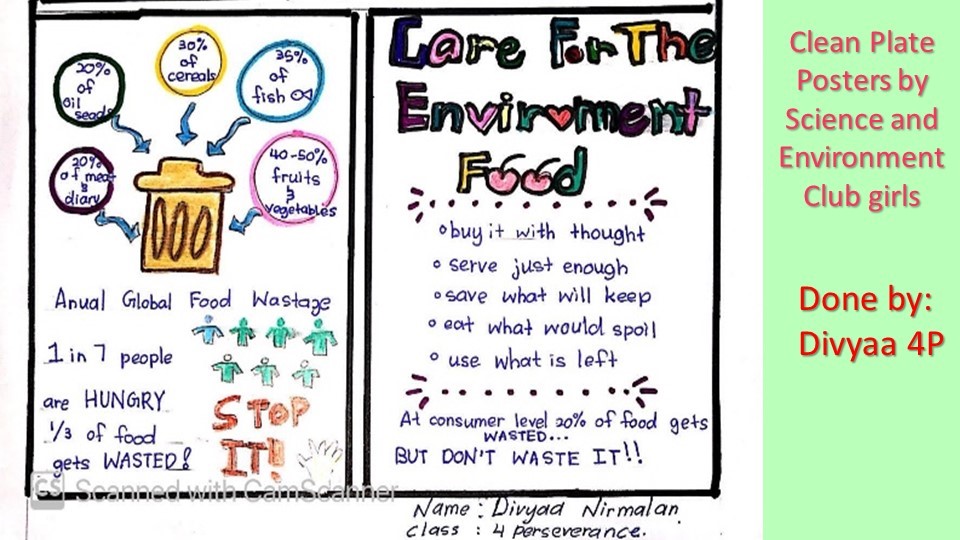 20%
of
oil
seeds
30%
of
cereals
35%
of
fish
20%
of meat
&
diary
40-50%
fruits
&
vegetables
Anual Global Food Wastage
1 in 7 people
are HUNGRY
1/3 of food
gets WASTED!
STOP
IT!!
Care For The
Enviroment
Food
buy it with thought
serve just enough
save what will keep
eat what would spoil
use what is left
At consumer level 20% of food gets
WASTED...
BUT DON'T WASTE IT!!
Name : Divyaa Nirmalan
class : 4 perseverance.
CS Scanned with CamScanner
Clean Plate
Posters by
Science and
Environment
Club girls
Done by:
Divyaa 4P